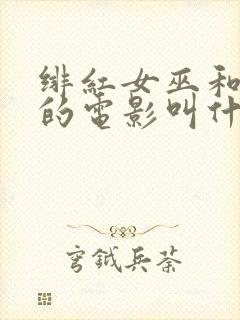 绯红女巫和
的电影叫什
穹钺兵荼